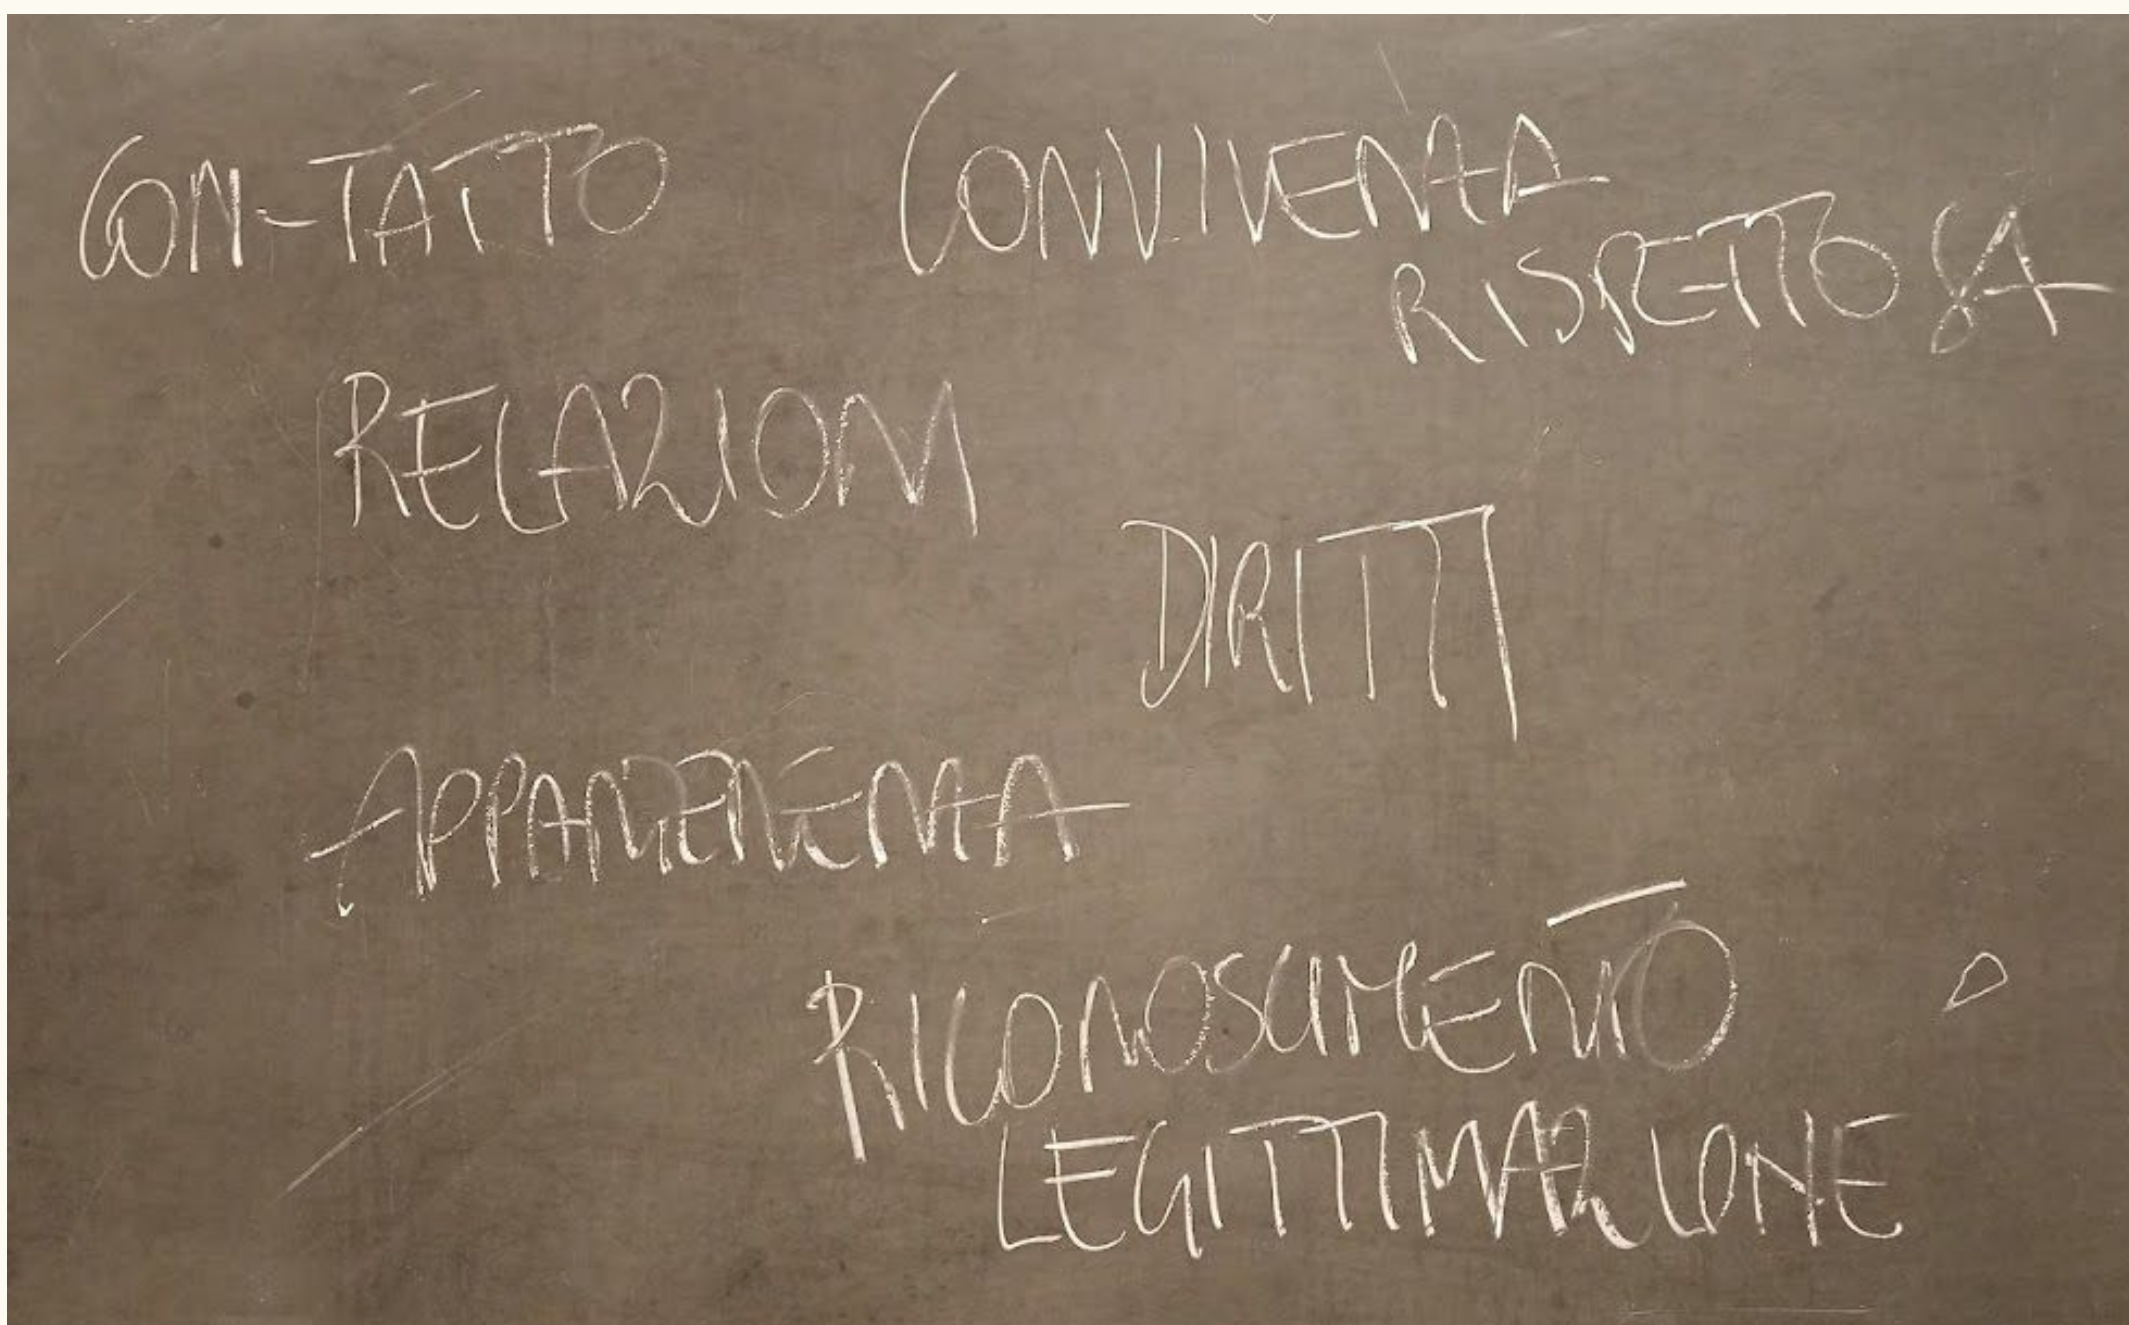 CON-TATTO
CONVIVENZA
RISPETTOSA
RELAZIONI
DIRITTI
APPARTENENZA
RICONOSCIMENTO
LEGITTIMAZIONE